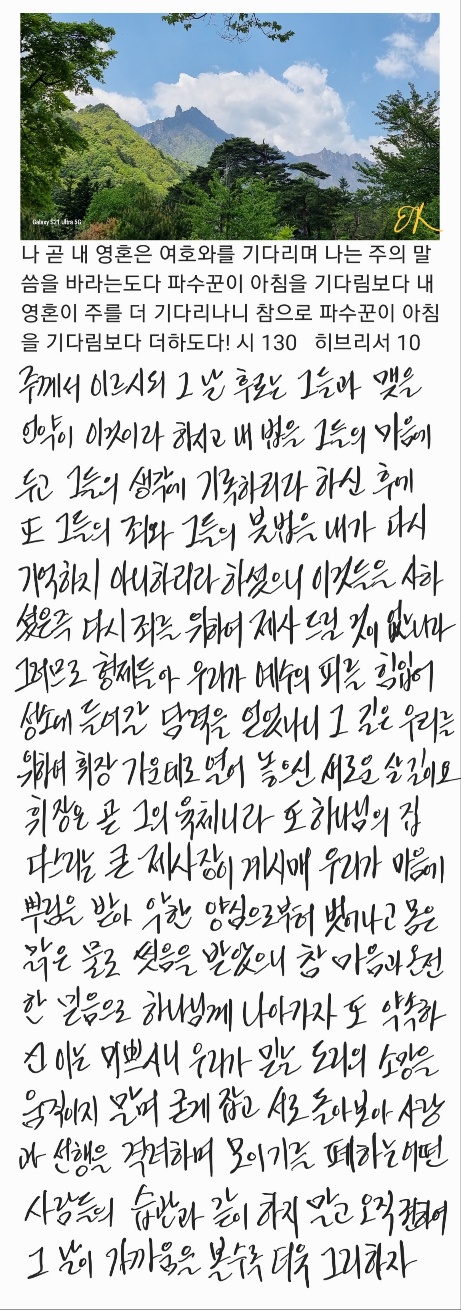 Galaxy S21 Ultra 5G
EK
나 곧 내 영혼은 여호와를 기다리며 나는 주의 말
씀을 바라는도다 파수꾼이 아침을 기다림보다 내
영혼이 주를 더 기다리나니 참으로 파수꾼이 아침
을 기다림보다 더하도다! 시 130 히브리서 10
주께서 이르시되 그 날 후로는 그들과 맺을
언약이 이것이라 하시고 내 법을 그들의 마음에
두고 그들의 생각에 기록하리라 하신 후에
또 그들의 죄와 그들의 불법을 내가 다시
기억하지 아니하리라 하셨으니 이것들을 사하
셨은즉 다시 죄를 위하여 제사 드릴 것이 없느니라
그러므로 형제들아 우리가 예수의 피를 힘입어
성소에 들어갈 담력을 얻었나니 그 길은 우리를
위하여 휘장 가운데로 열어 놓으신 새로운 살 길이요
휘장은 곧 그의 육체니라 또 하나님의 집
다스리는 큰 제사장이 계시매 우리가 마음에
뿌림을 받아 악한 양심으로부터 벗어나고 몸은
맑은 물로 씻음을 받았으니 참 마음과 온전
한 믿음으로 하나님께 나아가자 또 약속하
신 이는 미쁘시니 우리가 믿는 도리의 소망을
움직이지 말며 굳게 잡고 서로 돌아보아 사랑
과 선행을 격려하며 모이기를 폐하는 어떤
사람들의 습관과 같이 하지 말고 오직 권하여
그 날이 가까움을 볼수록 더욱 그리하자